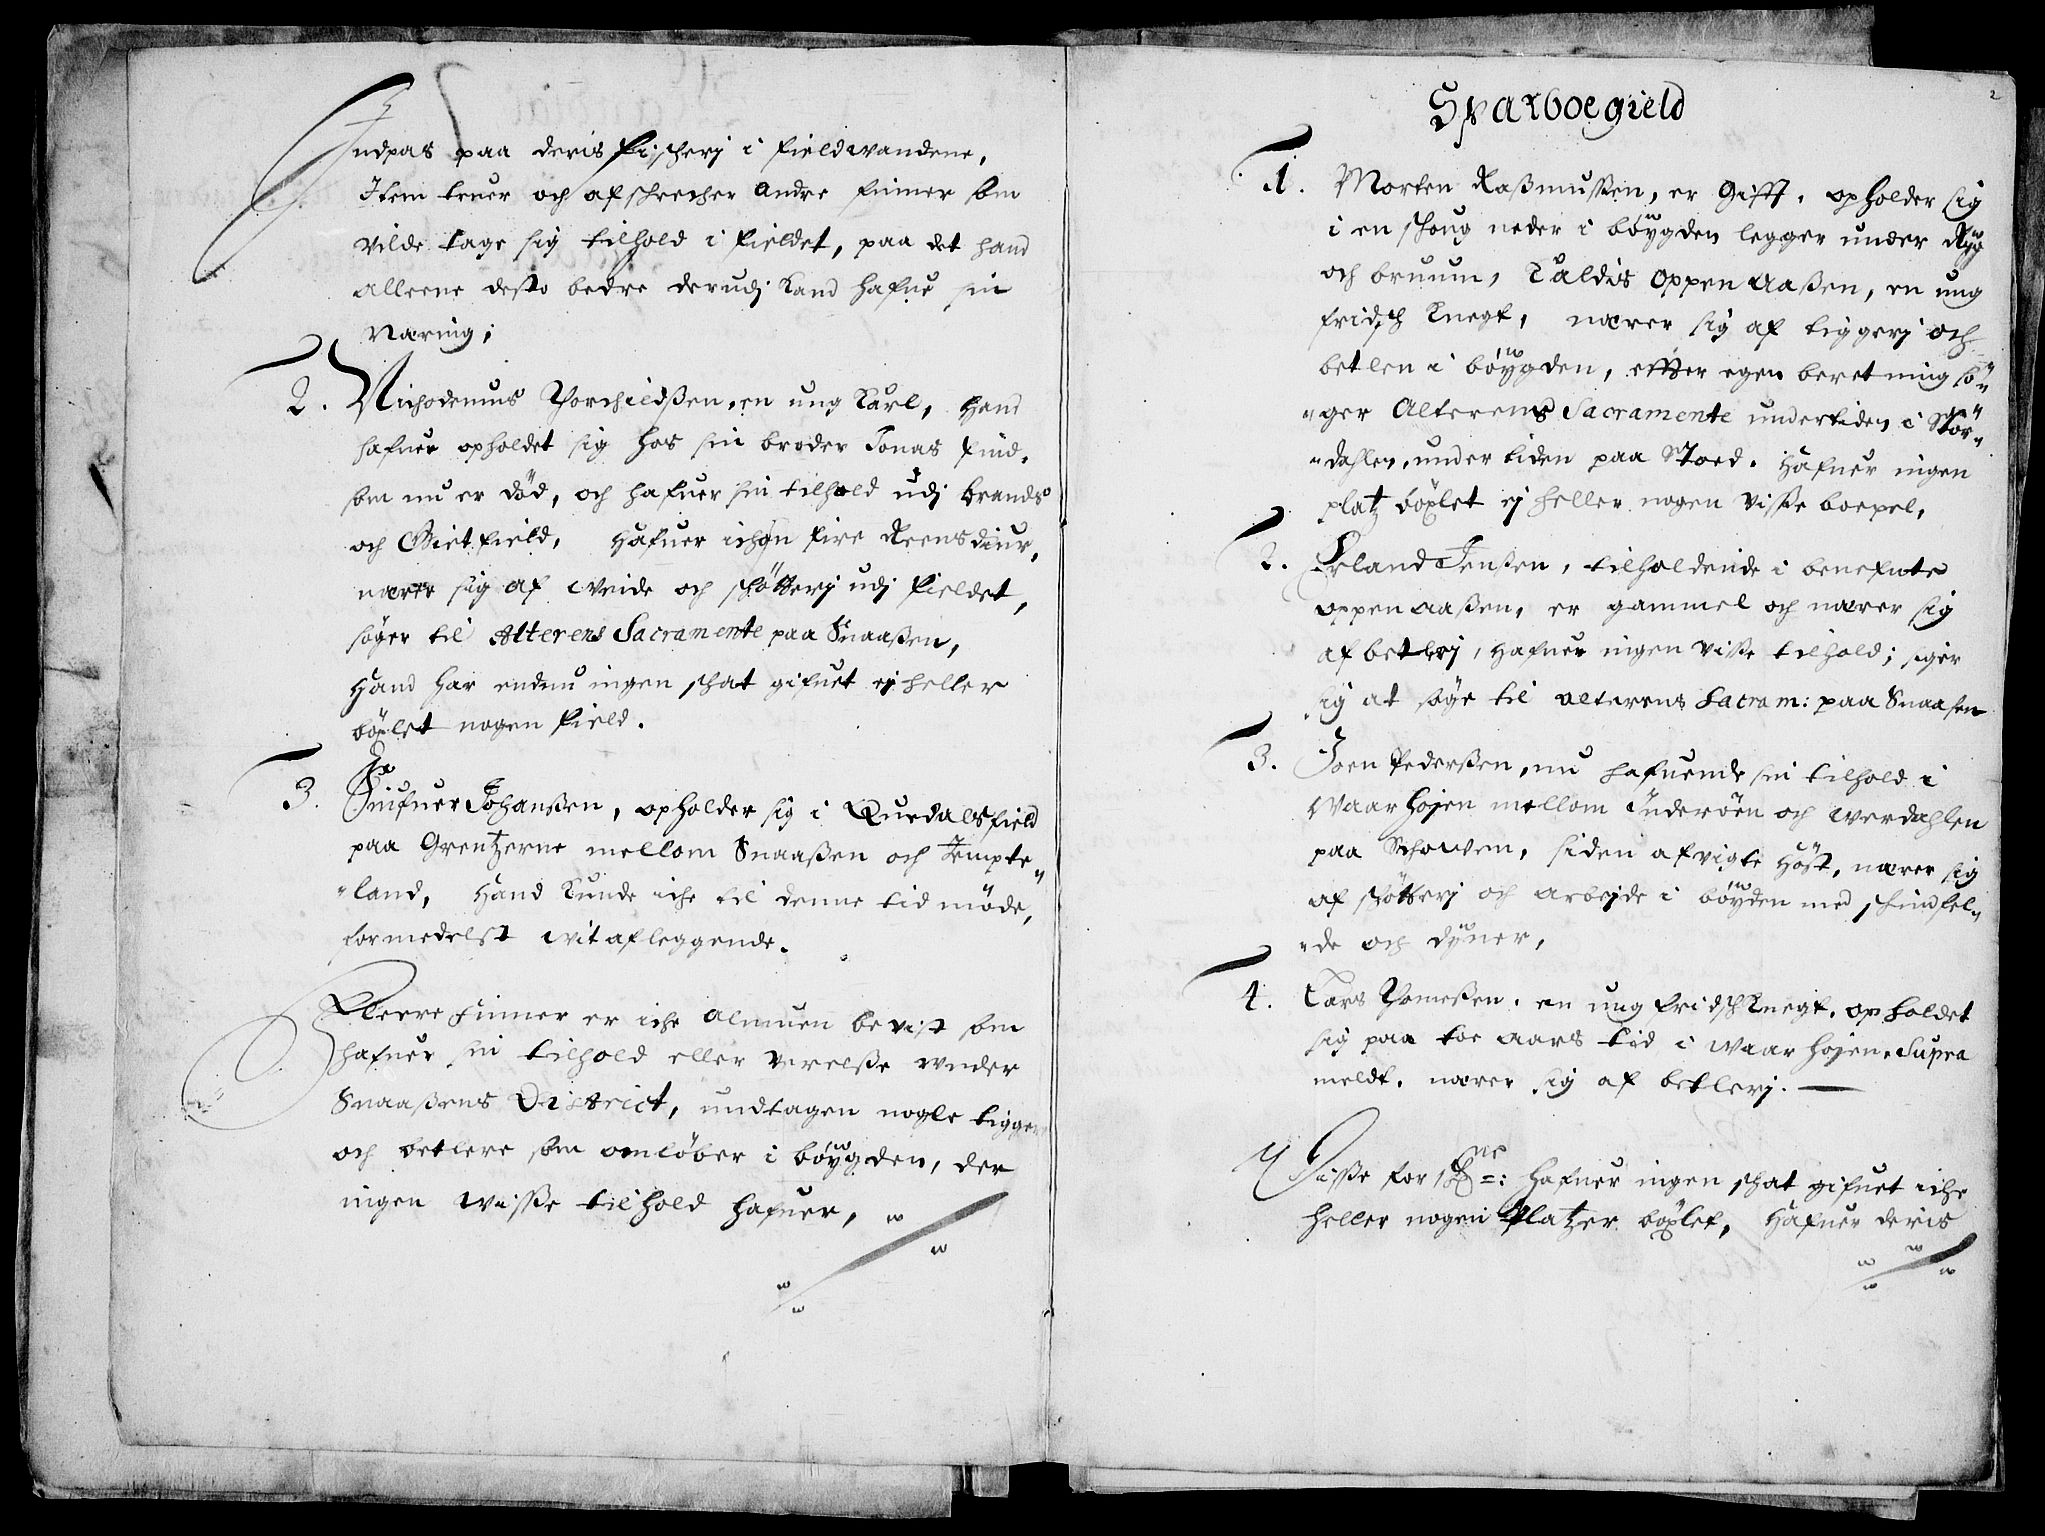 Indpas paa deris fischerj i fieldwandene,
Item truer och afschrecher andre finner som
vilde tage sig tilhold i fieldet, paa det hand
alleene desto bedre derudj kand hafue sin
Næring;
2. Nichodemus Thorchieldßen, en ung karl, hand
hafuer opholdet sig hos sin broder Jonas find,
som nu er död, och hafuer sin tilhold udj brands
och Gietfield, hafuer ichon fire Reensdiur,
nærer sig af weide och schötterj udj fieldet,
söger til Alterens Sacramente paa Snaaßen,
Hand har endnu ingen schat gifuet ej heller
böxlet nogen field.
3. Johanßen, opholder sig i Quedalsfield
paa Grentzerne mellom Snaaßen och Jempte„
„land, Hand kunde iche til denne tid möde,
formedelst wit afleggende.
Fleere finner er iche Almuen bevist som
hafuer sin tilhold eller verelße under
Snaaßens District, undtagen nogle tigger
och betlere som omlöber i böygden, der
ingen wisse tilhold hafuer,
2
Sparboegield
1. Morten Raßmussen, er gifft, opholder sig
i en schoug neder i böygden legger under Ryg
och bruum, kaldis oppen Aaßen, en ung
fridsch knegt, nærer sig af tiggerj och
betlen i böygden, effter egen beretning sö„
„ger Alterens Sacramente undertiden i Stör„
„dahlen, undertiden paa Stoed. Hafuer ingen
platz böxlet ej heller nogen visse boepel,
2. Erland Jenßen, tilholdende i benefnte
oppen aaßen, er gammel och nærer sig
af betlerj, hafuer ingen visse tilhold; siger
sig at söge til alterens Sacram: paa Snaasen
3. Joen Pederßen, nu hafuende sin tilhold i
Waarhojen mellom Inderöen och Werdahlen
paa Schowen, siden afvigte Höst, nærer sig
af schötterj och arbejde i böyden med schindfel„
„de och dyner,
4. Lars Thomeßen, en ung fridsch knegt, opholdet
sig paa toe aars tid i Waarhojen, Supra
meldt, nærer sig af betlerj.
Disse for hafuer ingen schat gifuet iche
heller nogen Platzer böxlet, Hafuer deris